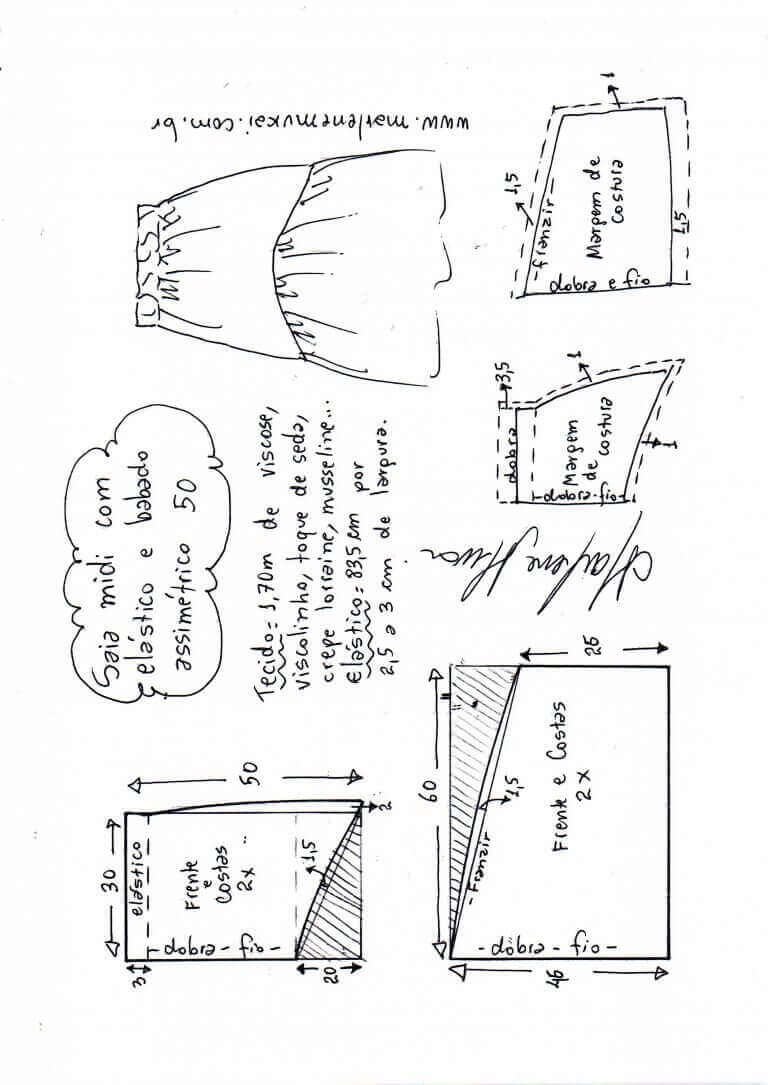 Saia midi com
elástico e babado
assimétrico 50
Tecido = 1,70m de viscose,
viscolinho, toque de seda,
crepe lorraine, musseline...
elástico = 83,5 cm por
2,5 a 3 cm de largura.
www.marlenemukai.com.br
30
50
elástico
Frente
e
Costas
2x
-dobra-fio-
3
20
1,5
2
60
25
46
Frente e Costas
2x
-Franzir
1,5
-dobra-fio-
3,5
dobra
Margem
de costura
-dobra-fio-
1
1
1,5
-franzir-
Margem de
costura
dobra e fio
1,5
1